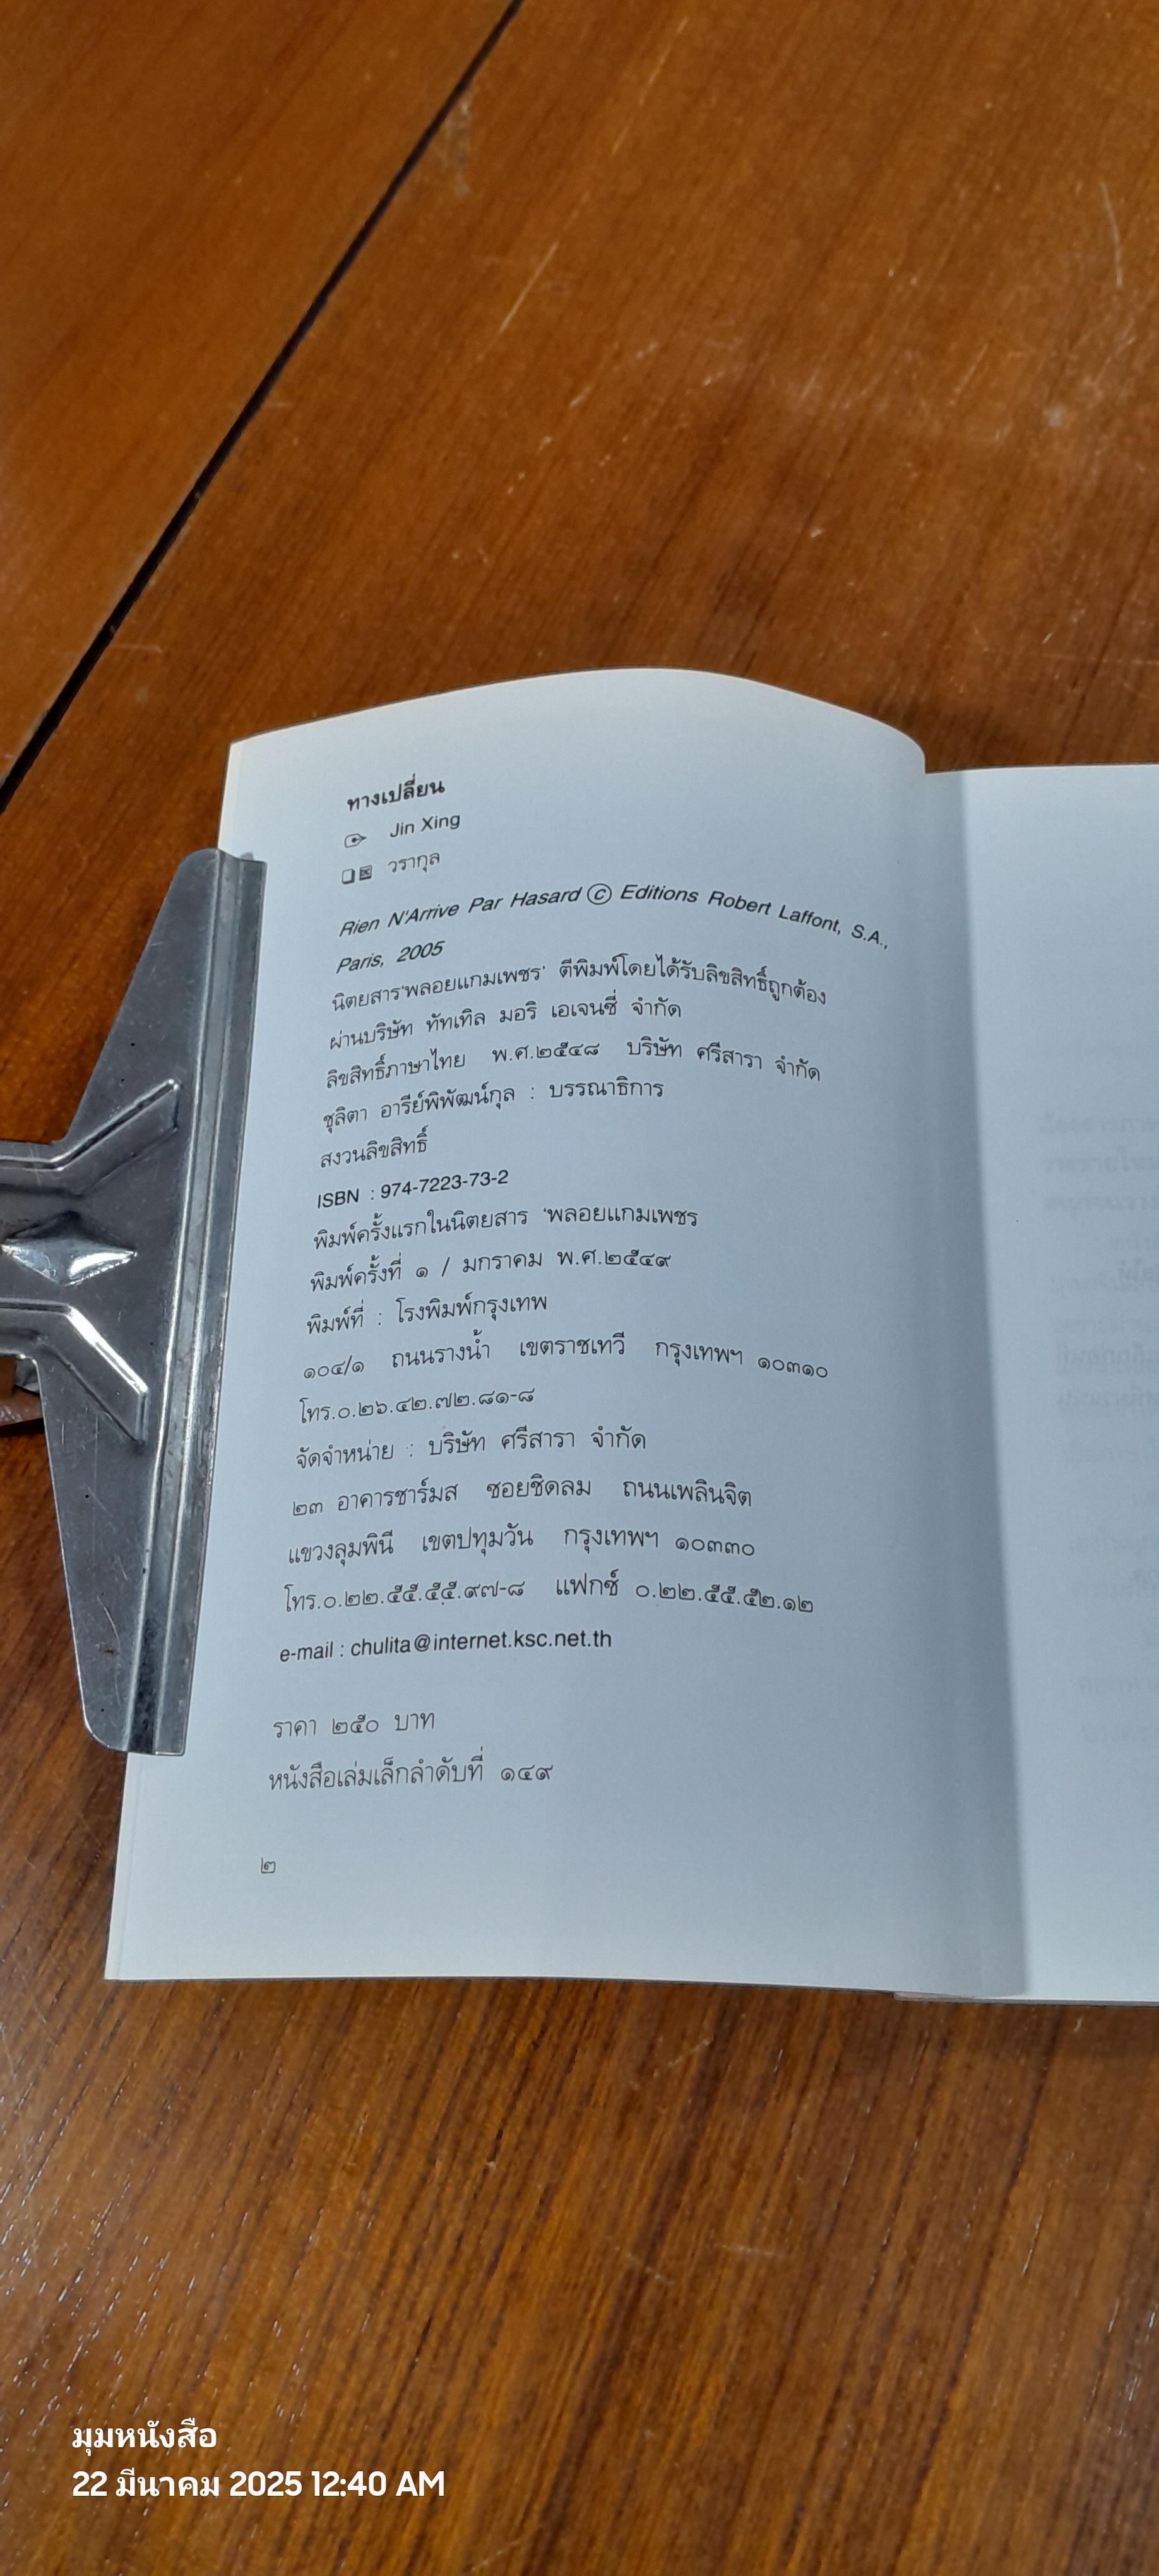 ทางเปลี่ยน
Jin Xing
วรากุล
Rien N'Arrive Par Hasard © Editions Robert Laffont, S.A.,
Paris, 2005
นิตยสาร'พลอยแกมเพชร' ตีพิมพ์โดยได้รับลิขสิทธิ์ถูกต้อง
ผ่านบริษัท ทัทเทิล มอริ เอเจนซี่ จำกัด
ลิขสิทธิ์ภาษาไทย พ.ศ.๒๕๔๘ บริษัท ศรีสารา จำกัด
ชุลิตา อารีย์พิพัฒน์กุล : บรรณาธิการ
สงวนลิขสิทธิ์
ISBN : 974-7223-73-2
พิมพ์ครั้งแรกในนิตยสาร 'พลอยแกมเพชร
พิมพ์ครั้งที่ ๑ / มกราคม พ.ศ.๒๕๔๙
พิมพ์ที่ : โรงพิมพ์กรุงเทพ
๑๐๔/๑ ถนนรางน้ำ เขตราชเทวี กรุงเทพฯ ๑๐๓๑๐
โทร.๐.๒๖.๔๒.๗๒.๘๑-๘
จัดจำหน่าย : บริษัท ศรีสารา จำกัด
๒๓ อาคารชาร์มส ซอยชิดลม ถนนเพลินจิต
แขวงลุมพินี เขตปทุมวัน กรุงเทพฯ ๑๐๓๓๐
โทร.๐.๒๒.๕๕.๕๕.๙๗-๘ แฟกซ์ ๐.๒๒.๕๕.๕๒.๑๒
e-mail : chulita@internet.ksc.net.th
ราคา ๒๕๐ บาท
หนังสือเล่มเล็กลำดับที่ ๑๔๙
๒
มุมหนังสือ
22 มีนาคม 2025 12:40 AM